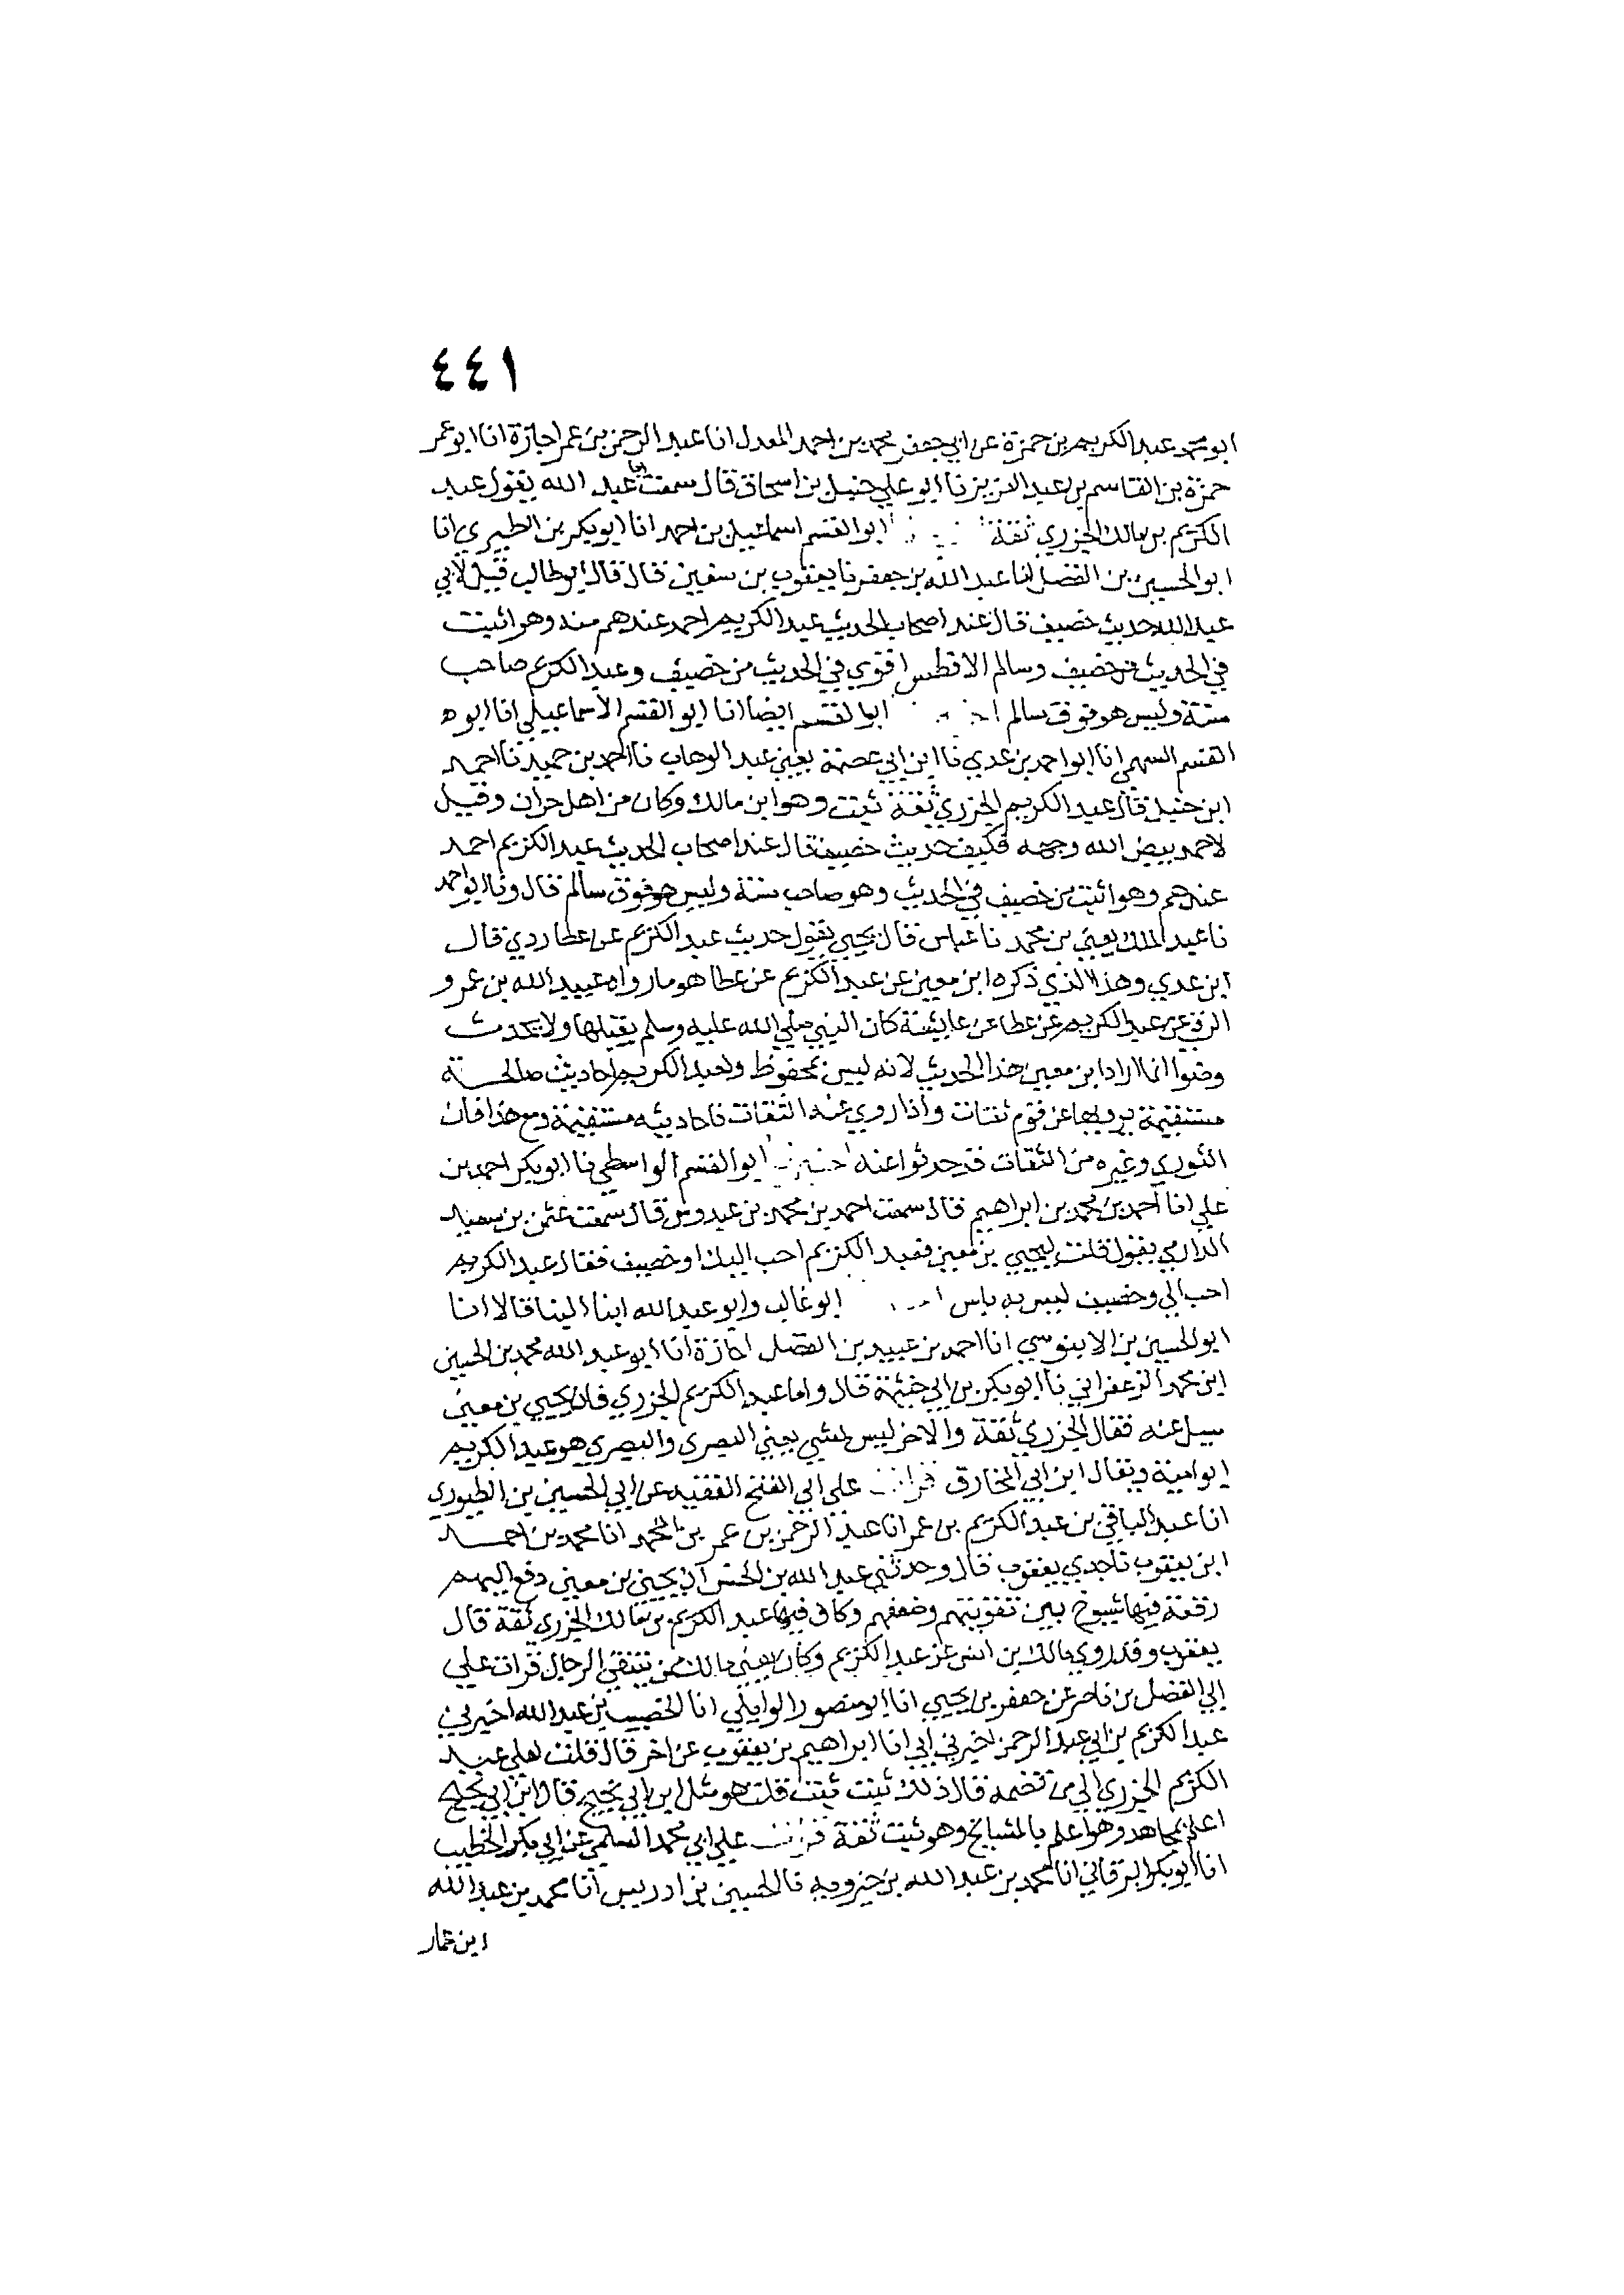 ٤٤١
ابو محمد عبد الكريم بن حمزة عن ابي جعفر محمد بن احمد المعدل انا عبد الرحمن بن عمر اجازة انا ابو عمر
حمزة بن القاسم بن عبد العزيز نا ابو علي حنبل بن اسحاق قال سمعت ابا عبد الله يقول عبد
الكريم بن مالك الجزري ثقة ابو القسم اسماعيل بن احمد انا ابو بكر بن الطبري انا
ابو الحسين بن الفضل انا عبد الله بن جعفر نا يعقوب بن سفين قال قال ابو طالب قيل لابي
عبد الله حديث خصيف قال عند اصحاب الحديث عبد الكريم احمد عندهم منه وهو اثبت
في الحديث من خصيف وسالم الافطس اقوي في الحديث من خصيف وعبد الكريم صاحب
سنة وليس هو فوق سالم ابو القسم ايضا انا ابو القسم الاسماعيلي انا ابو ه
القسم السهمي انا ابو احمد بن عدي نا ابن ابي عصمة يعني عبد الوهاب نا احمد بن حميد نا احمد
ابن حنبل قال عبد الكريم الجزري ثقة ثبت وهو ابن مالك وكان من اهل حران وقيل
لاحمد بيض الله وجهه فكيف حديث خصيف قال عند اصحاب الحديث عبد الكريم احمد
عندهم وهو اثبت من خصيف في الحديث وهو صاحب سنة وليس هو فوق سالم قال ونا ابو احمد
نا عبد الملك يعني بن محمد نا عباس قال يحيي يقول حديث عبد الكريم عن عطا ردي قال
ابن عدي وهذا الذي ذكره ابن معين عن عبد الكريم عن عطا هو ما رواه عبيد الله بن عمرو
الرقي عن عبد الكريم عن عطا عن عايشة كان النبي صلي الله عليه وسلم يقبلها ولا يحدث
وضوا انما اراد ابن معين هذا الحديث لانه ليس بمحفوظ ولعبد الكريم احاديث صالحة
مستقيمة يرويها عن قوم ثقات واذا روي عنه الثقات فاحاديثه مستقيمة ومع هذا فان
الثوري وغيره من الثقات قد حدثوا عنه ابو القسم الواسطي نا ابو بكر احمد بن
علي انا احمد بن محمد بن ابراهيم قال سمعت احمد بن محمد بن عبدوس قال سمعت عثمن بن سعيد
الدارمي يقول قلت ليحيي بن معين فعبد الكريم احب اليك او خصيف فقال عبد الكريم
احب الي وخصيف ليس به باس ابو غالب وابو عبد الله ابنا البنا قالا انا
ابو الحسين بن الابنوسي انا احمد بن عبيد بن الفضل اجازة انا ابو عبد الله محمد بن الحسين
ابن محمد الزعفراني نا ابو بكر بن ابي خيثمة قال واما عبد الكريم الجزري فان يحيي بن معين
سيل عنه فقال الجزري ثقة والاخر ليس بشي يعني البصري والبصري هو عبد الكريم
ابو امية ويقال ابن ابي المخارق قرات علي ابي الفتح الفقيه عن ابي الحسين بن الطيوري
انا عبد الباقي بن عبد الكريم بن عمر انا عبد الرحمن بن عمر بن احمد انا محمد بن احمد
ابن يعقوب نا جدي يعقوب قال وحدثني عبد الله بن الحسن ان يحيي بن معين دفع اليهم
رقعة فيها شيوخ بين تقويتهم وضعفهم وكان فيها عبد الكريم بن مالك الجزري ثقة قال
يعقوب وقد روي مالك بن انس عن عبد الكريم وكان يعني مالك ممن ينتقي الرجال قرات علي
ابي الفضل بن ناصر عن جعفر بن يحيي انا ابو منصور الوايلي انا الخصيب بن عبد الله اخبرني
عبد الكريم بن ابي عبد الرحمن اخبرني ابي انا ابراهيم بن يعقوب عن اخر قال قلت لعلي عبد
الكريم الجزري الي من تضمه قال ذلك ثبت ثبت قلت هو مثل ابن ابي نجيح قال ابن ابي نجيح
اعلم بمجاهد وهو اعلم بالمشايخ وهو ثبت ثقة قرات علي ابي محمد السلمي عن ابي بكر الخطيب
انا ابو بكر البرقاني انا محمد بن عبد الله بن خيرويه نا الحسين بن ادريس انا محمد بن عبد الله
ابن عمار